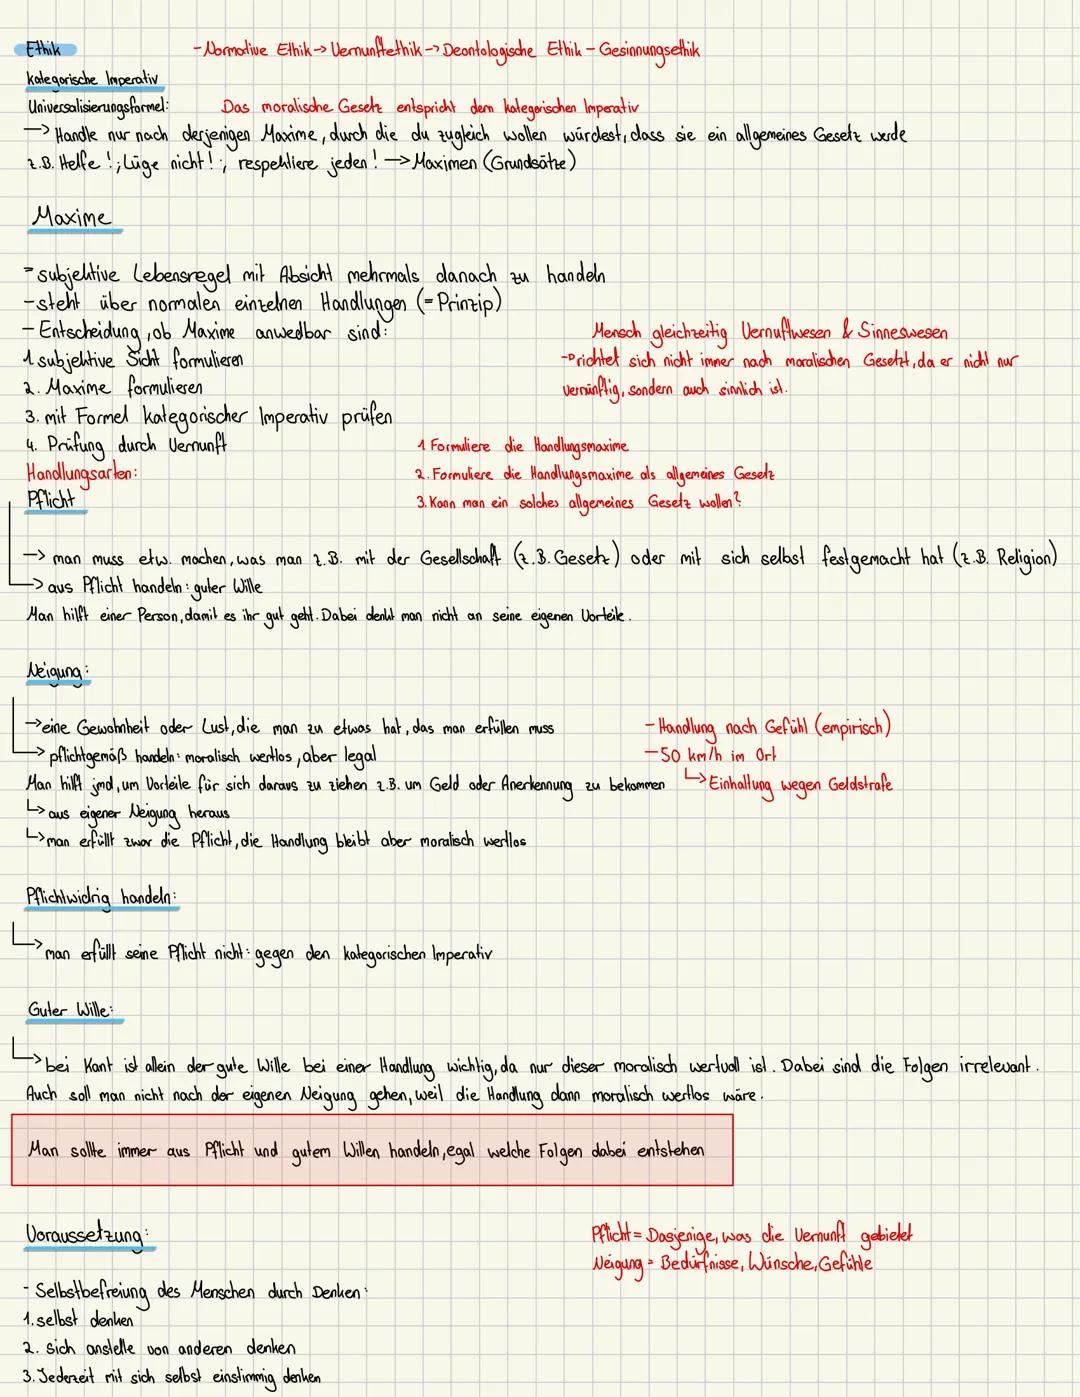 Ethik
- Normative Ethik → Vernunftethik → Deontologische Ethik - Gesinnungsethik
kategorische Imperativ
Universalisierungsformel: Das moralische Gesetz entspricht dem kategorischen Imperativ
→ Handle nur nach derjenigen Maxime, durch die du zugleich wollen würdest, dass sie ein allgemeines Gesetz werde
z.B. Helfe !; Lüge nicht! ; respektiere jeden! → Maximen (Grundsätze)
Maxime
- subjektive Lebensregel mit Absicht mehrmals danach zu handeln
- steht über normalen einzelnen Handlungen (= Prinzip)
- Entscheidung, ob Maxime anwedbar sind:
1 subjektive Sicht formulieren
2. Maxime formulieren
3. mit Formel kategorischer Imperativ prüfen
4. Prüfung durch Vernunft
Mensch gleichzeitig Vernuftwesen & Sinneswesen
→ richtet sich nicht immer nach moralischen Gesetzt, da er nicht nur
vernünftig, sondern auch sinnlich ist.
1 Formuliere die Handlungsmaxime
2. Formuliere die Handlungsmaxime als allgemeines Gesetz
3. Kann man ein solches allgemeines Gesetz wollen?
Handlungsarten:
Pflicht
→ man muss etw. machen, was man z.B. mit der Gesellschaft (z.B. Gesetz) oder mit sich selbst festgemacht hat (z.B. Religion)
→ aus Pflicht handeln: guter Wille
Man hilft einer Person, damit es ihr gut geht. Dabei denkt man nicht an seine eigenen Vorteile.
Neigung:
→ eine Gewohnheit oder Lust, die man zu etwas hat, das man erfüllen muss
→ pflichtgemäß handeln: moralisch wertlos, aber legal
Man hilft jmd, um Vorteile für sich daraus zu ziehen z.B. um Geld oder Anerkennung zu bekommen
↳ aus eigener Neigung heraus
↳ man erfüllt zwar die Pflicht, die Handlung bleibt aber moralisch wertlos
- Handlung nach Gefühl (empirisch)
- 50 km/h im Ort
↳ Einhaltung wegen Geldstrafe
Pflichtwidrig handeln:
↳ man erfüllt seine Pflicht nicht: gegen den kategorischen Imperativ
Guter Wille:
↳ bei Kant ist allein der gute Wille bei einer Handlung wichtig, da nur dieser moralisch wertvoll ist. Dabei sind die Folgen irrelevant.
Auch soll man nicht nach der eigenen Neigung gehen, weil die Handlung dann moralisch wertlos wäre.
Man sollte immer aus Pflicht und gutem Willen handeln, egal welche Folgen dabei entstehen
Voraussetzung:
Pflicht = Dasjenige, was die Vernunft gebietet
Neigung = Bedürfnisse, Wünsche, Gefühle
- Selbstbefreiung des Menschen durch Denken:
1. selbst denken
2. sich anstelle von anderen denken
3. Jederzeit mit sich selbst einstimmig denken